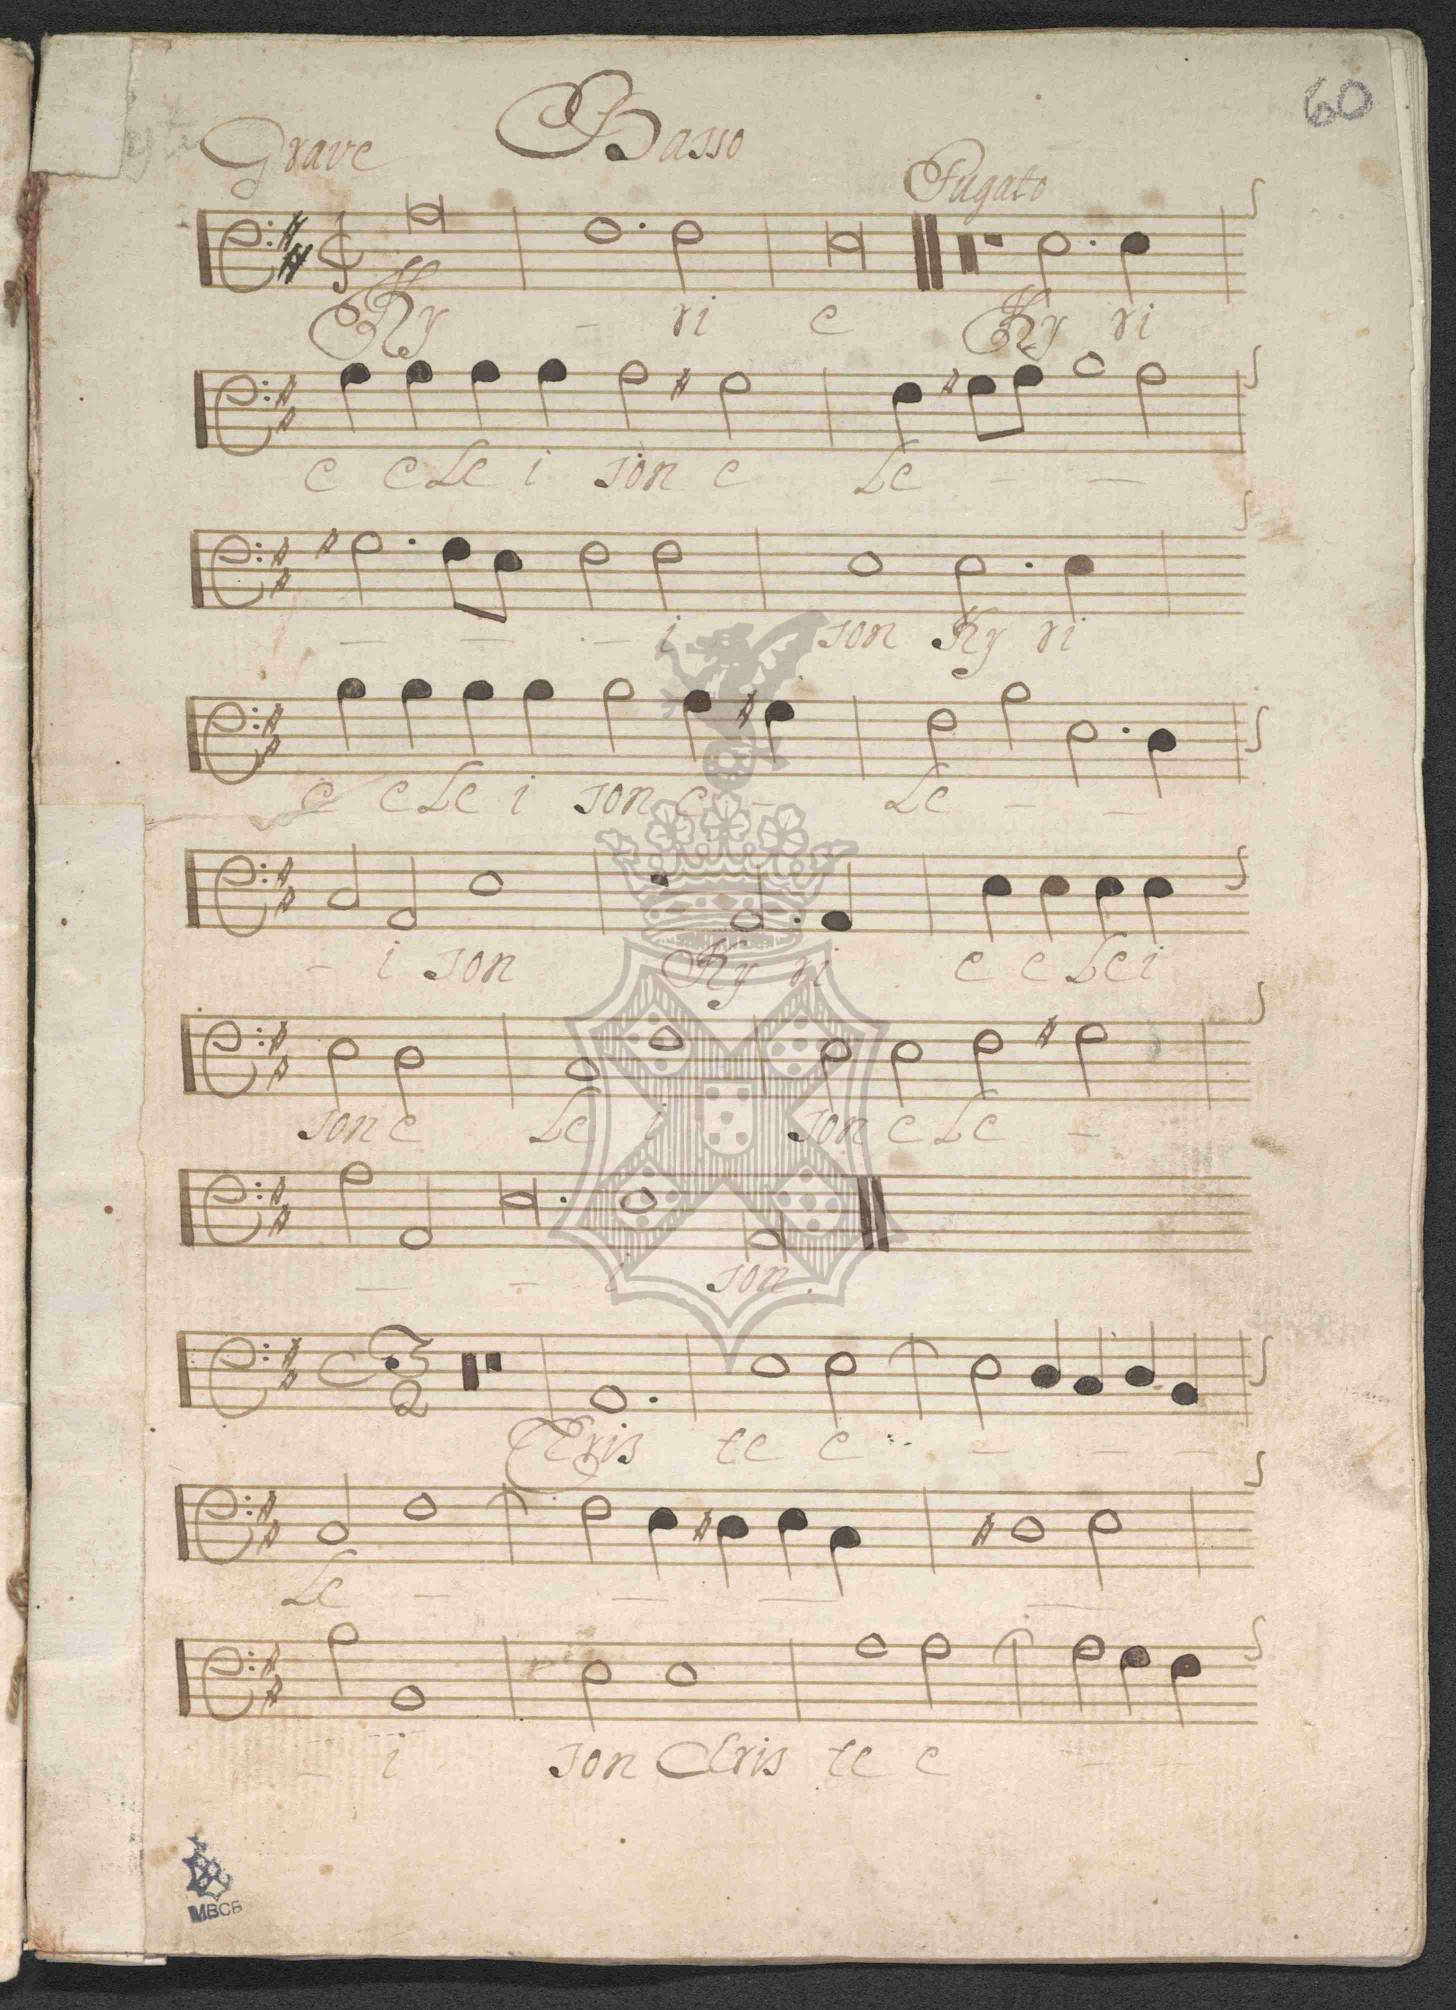 60
Grave Basso
Fugato
Ky - ri e Ky ri
e e Le i son e Le - -
- - - i son Ky ri
e e Le i son e - Le - -
- i son Ky ri e e Le i
son e Le i son e Le -
- - i son.
3
2
Cris te e - - -
Le - - - -
- i son Cris te e - -
MBCB